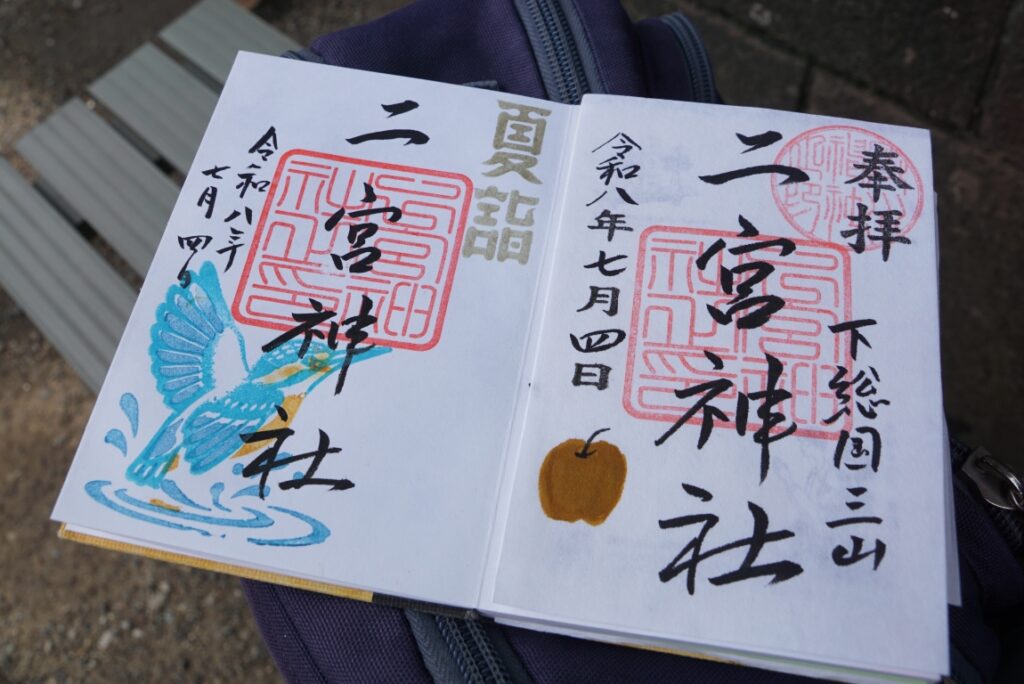 奉拝
下総国三山
二宮神社
令和八年七月四日
夏詣
二宮神社
令和八年
七月四日